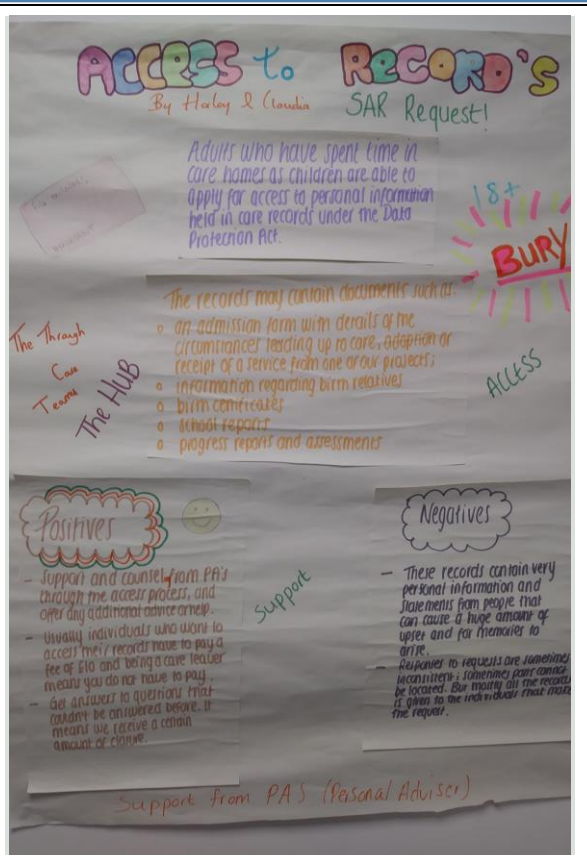 ACCESS to RECORD'S
By Harley & Claudia
SAR Request!
Adults who have spent time in
care homes as children are able to
apply for access to personal information
held in care records under the Data
Protection Act.
18+
BURY
The records may contain documents such as:
o an admission form with details of the
circumstances leading up to care, adoption or
receipt of a service from one of our projects;
o information regarding birth relatives
o birth certificates
o school reports
o progress reports and assessments
The Through
Care
Teams
The HUB
ACCESS
Positives
- Support and counsel from PA's
through the access process, and
offer any additional advice or help.
- Usually individuals who want to
access their records have to pay a
fee of £10 and being a care leaver
means you do not have to pay.
- Get answers to questions that
couldn't be answered before. It
means we receive a certain
amount of closure.
Support
Negatives
- These records contain very
personal information and
statements from people that
can cause a huge amount of
upset and for memories to
arise.
- Responses to requests are sometimes
inconsistent; sometimes parts cannot
be located. But mostly all the records
is given to the individuals that make
the request.
Support from PAS (Personal Adviser)